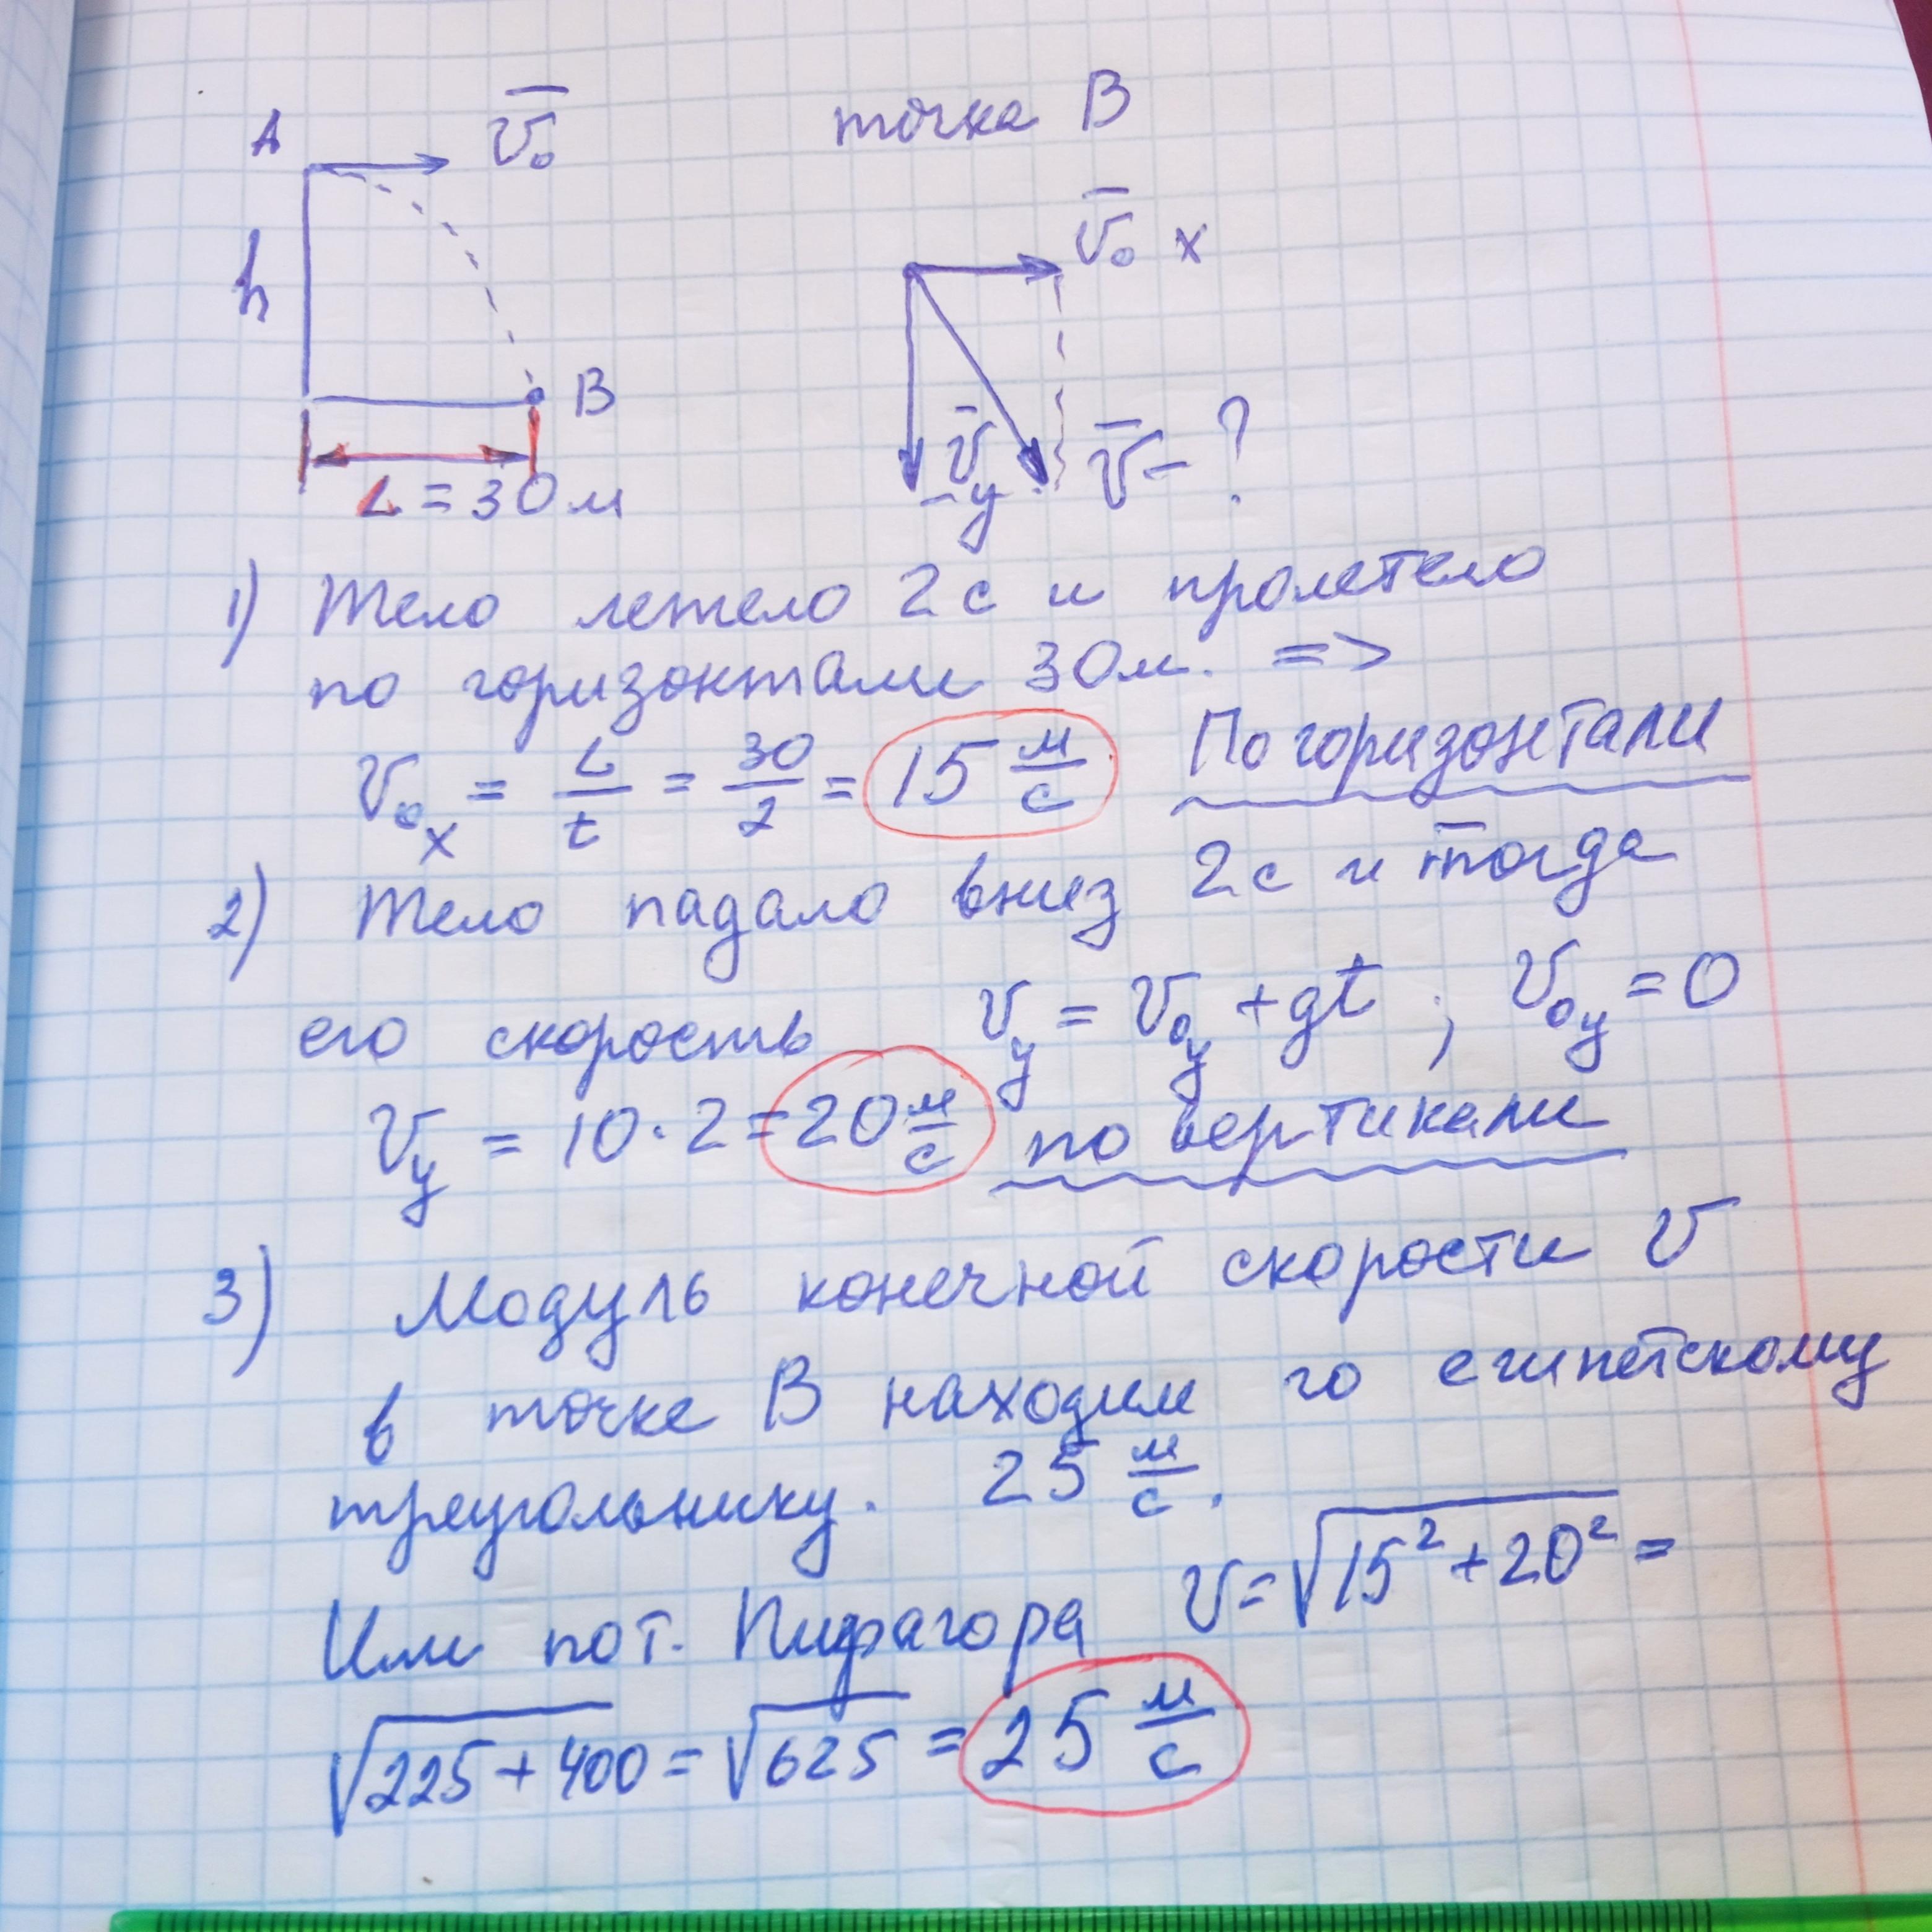 A v̅₀ точка В
v̅₀ x
h
В
v̅y v̅ - ?
L = 30 м
1) Тело летело 2 с и пролетело
по горизонтали 30 м. =>
v₀x = L/t = 30/2 = 15 м/с По горизонтали
2) Тело падало вниз 2 с и тогда
его скорость vy = v₀y + gt ; v₀y = 0
vy = 10 · 2 = 20 м/с по вертикали
3) Модуль конечной скорости v
в точке В находим по египетскому
треугольнику. 25 м/с.
Или по т. Пифагора v = √(15² + 20²) =
√(225 + 400) = √625 = 25 м/с